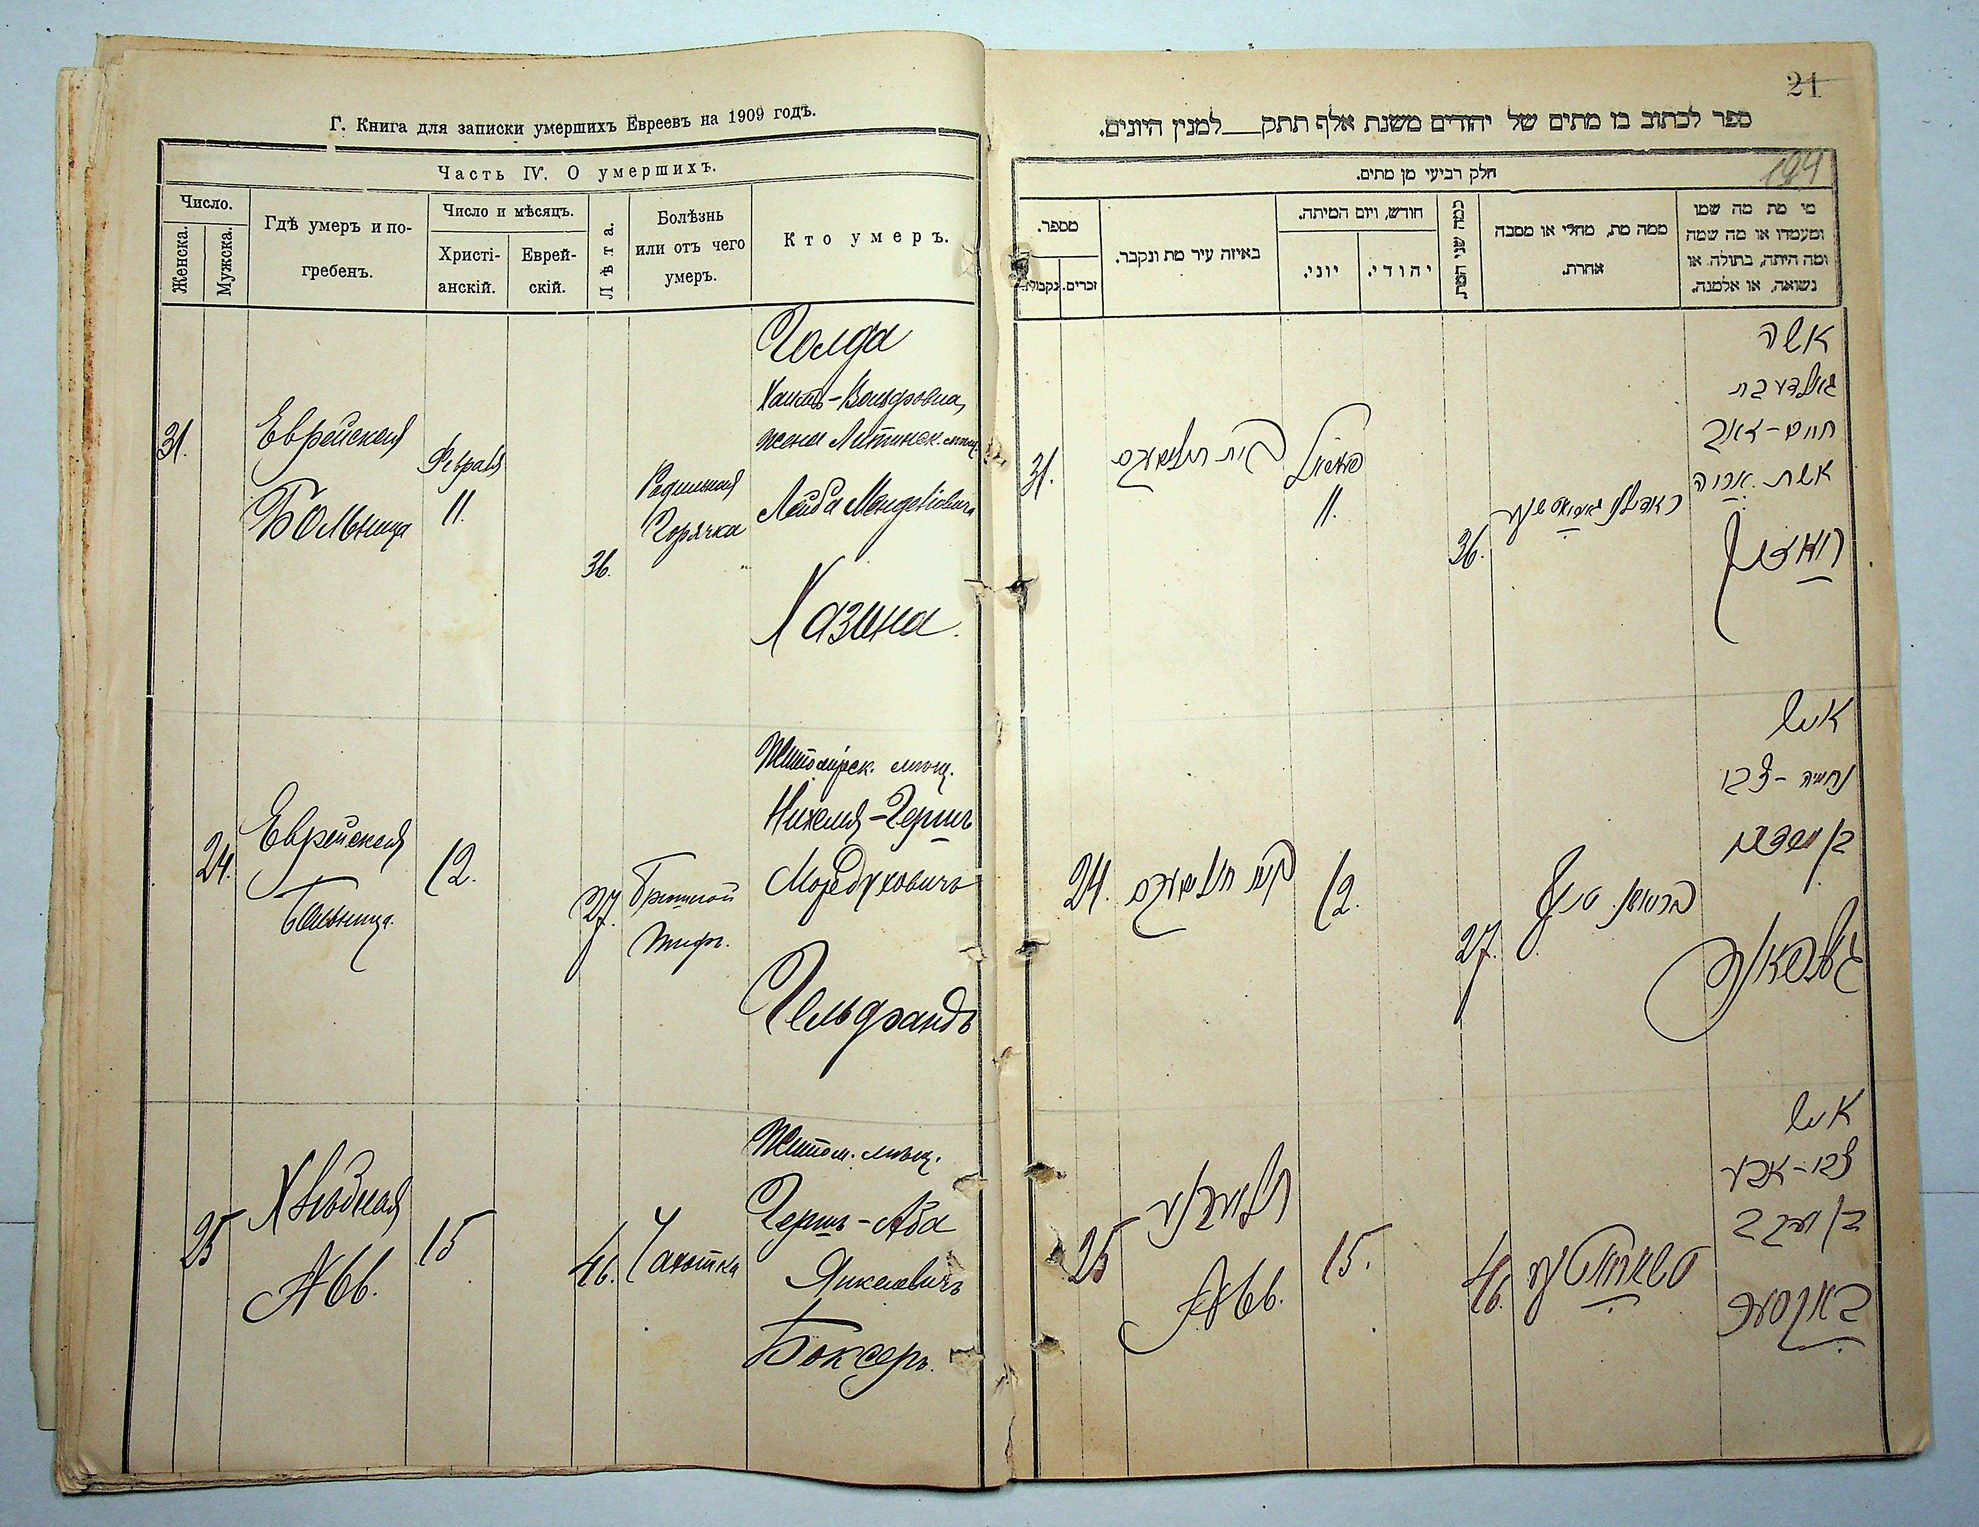 Г. Книга для записки умершихъ Евреевъ на 1909 годъ.
Часть IV. О умершихъ.
Число.
Женска.
Мужска.
Гдѣ умеръ и по-
гребенъ.
Число и мѣсяцъ.
Христі-
анскій.
Еврей-
скій.
Лѣта.
Болѣзнь
или отъ чего
умеръ.
Кто умеръ.
31.
Еврейская
Больница
Февраля
11.
36.
Родильная
Горячка
Голда
Хаимъ-Вольфовна,
жена Летичев. мѣщ.
Лейба Менделіовича
Хазина.
24.
Еврейская
Больница.
12.
27.
Брюшной
тифъ.
Житомірск. мѣщ.
Нихемія-Гершъ
Мордуховичъ
Гельфандъ
25
Хлѣбная
№ 66.
15
46.
Чахотка
Житом. мѣщ.
Гершъ-Аба
Янкелевичъ
Боксеръ.
21
194
ספר לכתוב בו מתים של יהודים משנת אלף תתק___למנין היונים.
חלק רביעי מן מתים.
מספר.
נקבות.
זכרים.
באיזה עיר מת ונקבר.
חודש, ויום המיתה.
יוני.
יהודי.
כמה שני המת
ממה מת, מחלי או מסבה
אחרת.
מי מת מה שמו
ומעמדו או מה שמה
ומה היתה, בתולה או
נשואה, או אלמנה.
31.
בית
11.
36.
אשה
אשת אריה
24.
12.
27.
איש
נחמיה-צבי
בן מרדכי
געלפאנד
25
№ 66.
15.
46.
איש
צבי-אבא
בן יעקב
באקסער